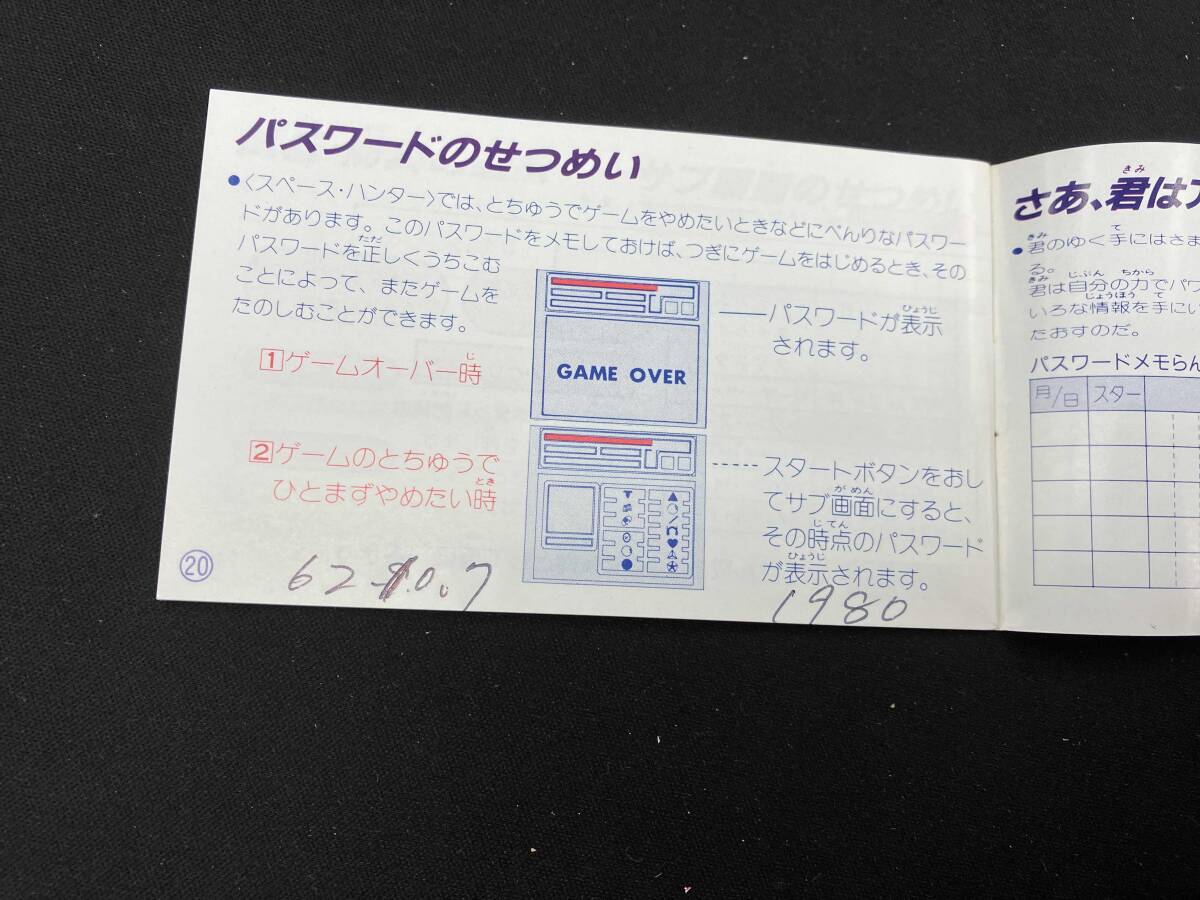 パスワードのせつめい
●〈スペース・ハンター〉では、とちゅうでゲームをやめたいときなどにべんりなパスワー
ドがあります。このパスワードをメモしておけば、つぎにゲームをはじめるとき、その
パスワードを正しくうちこむ
ことによって、またゲームを
たのしむことができます。
1 ゲームオーバー時
GAME OVER
パスワードが表示
されます。
2 ゲームのとちゅうで
ひとまずやめたい時
スタートボタンをおし
てサブ画面にすると、
その時点のパスワード
が表示されます。
20
62.10.7
1980
さあ、君は
●君のゆく手にはさま
る。
君は自分の力でパワ
いろな情報を手にい
たおすのだ。
パスワードメモらん
月/日 スター